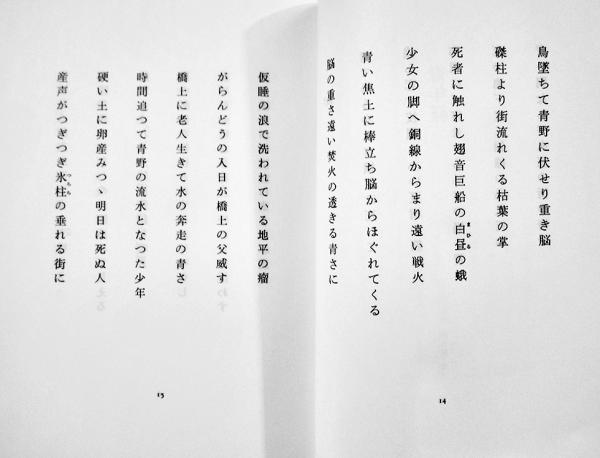 鳥墜ちて青野に伏せり重き脳
磔柱より街流れくる枯葉の掌
死者に触れし翅音巨船の白昼の蛾
まひる
少女の脚へ銅線からまり遠い戦火
青い焦土に棒立ち脳からほぐれてくる
脳の重さ遠い焚火の透きる青さに
14
仮睡の浪で洗われている地平の瘤
がらんどうの入日が橋上の父威す
橋上に老人生きて水の奔走の青さ
時間追つて青野の流水となつた少年
硬い土に卵産みつゝ明日は死ぬ人
産声がつぎつぎ氷柱の垂れる街に
つらら
15